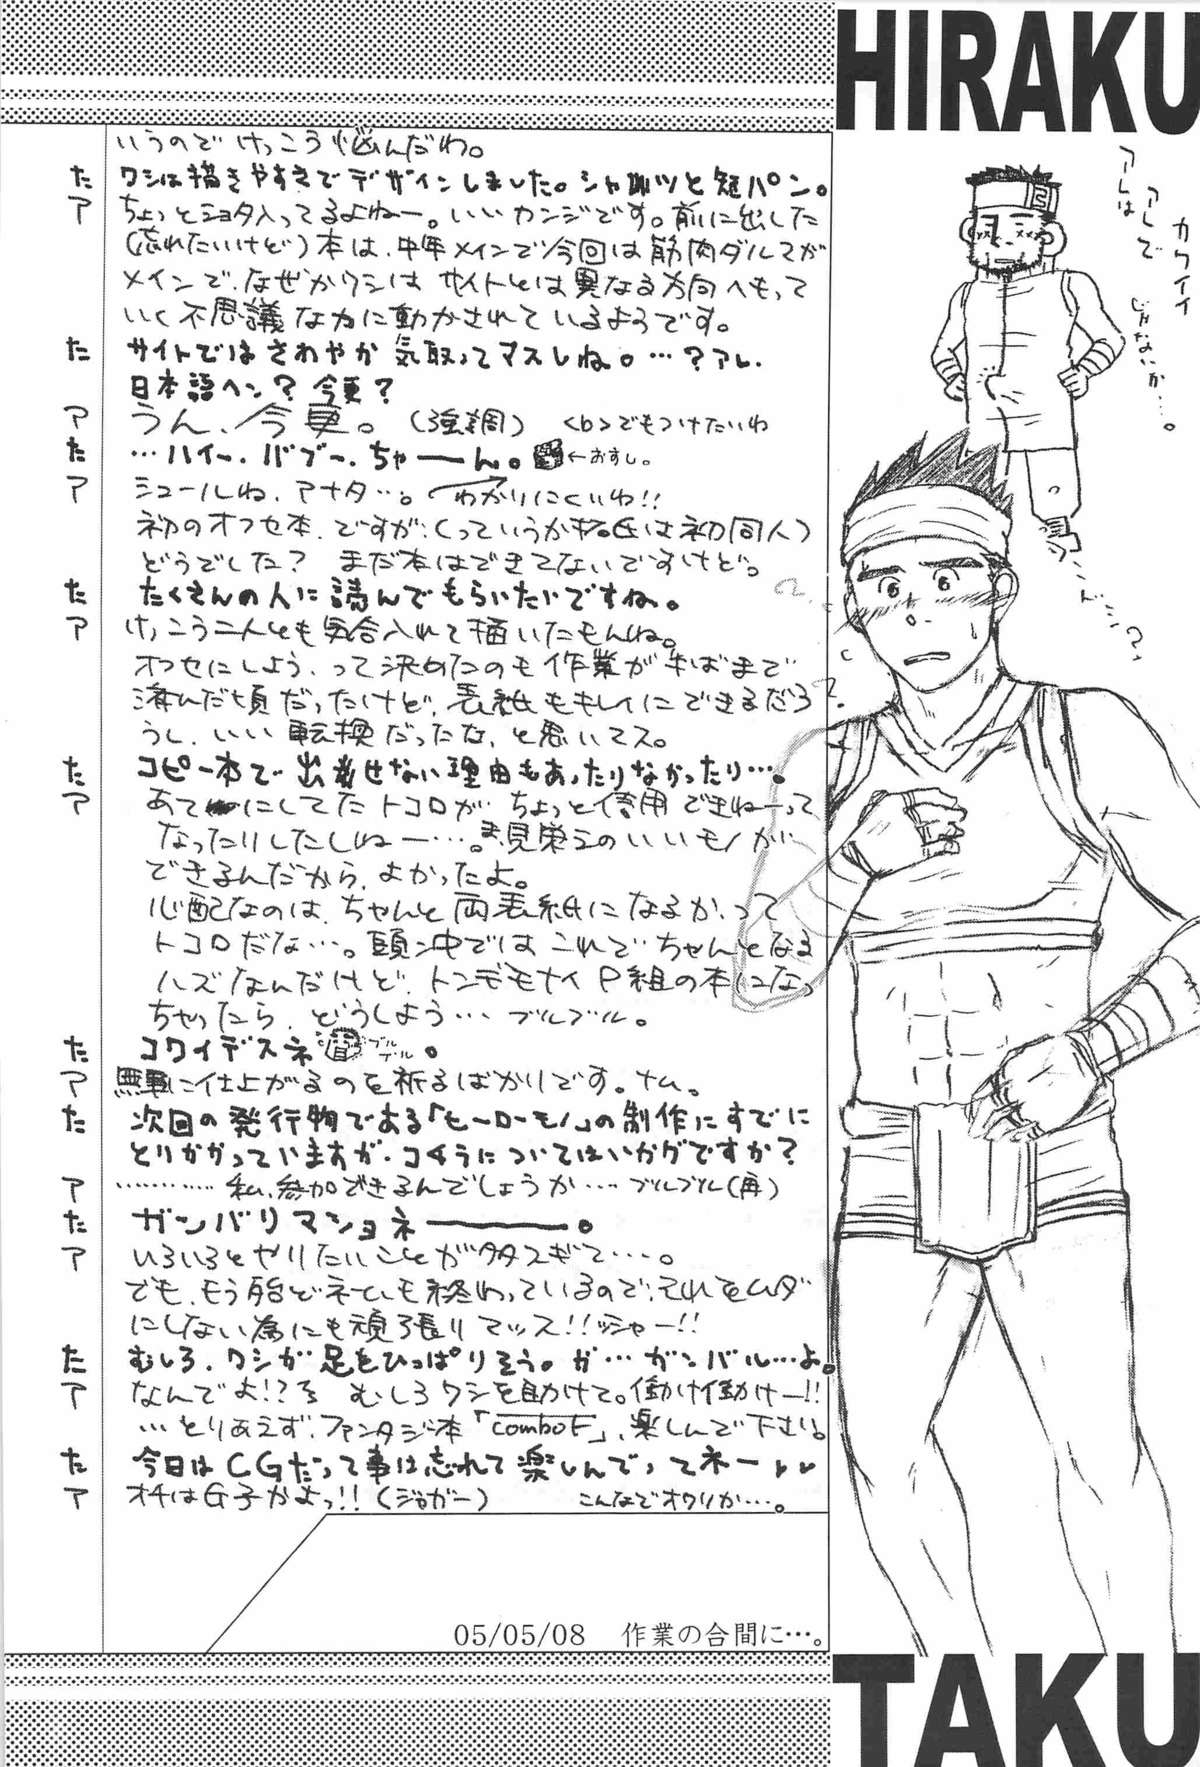 HIRAKU
いうのでけっこう悩んだわ。
た ワシは描きやすさでデザインしました。シャツと短パン。
ア ちょっとショタ入ってるよねー。いいカンジです。前に出した
(忘れたいけど)本は、中年メインで今回は筋肉ダルマが
メインで、なぜかワシは サイトとは異なる方向へもって
いく不思議な力に動かされているようです。
た サイトではさわやか気取ってマスしね。…?アレ、
日本語ヘン?今更?
ア うん、今更。(強調) <b>でもつけたいわ
た …ハイー、バブー、ちゃーーん。 ←おすし。
ア シュールね、アナタ…。 わかりにくいわ!!
初のオフセ本、ですが、(っていうか 氏は初同人)
どうでした? まだ本はできてないですけど。
た たくさんの人に読んでもらいたいですね。
ア けっこう二人とも気合入れて描いたもんね。
オフセにしよう、って決めたのも作業が半ばまで
済んだ頃だったけど、表紙もキレイにできるだろ
うし、いい転換だったな、と思いマス。
た コピー本で出せない理由もあったりなかったり…。
ア あてにしてたトコロが、ちょっと信用できねーって
なったりしたしねー…。見栄えのいいモノが
できるんだから、よかったよ。
心配なのは、ちゃんと両表紙になるか、って
トコロだな…。頭ン中ではこれで、ちゃんとなる
ハズなんだけど、トンデモナイP組の本になっ
ちゃったら、どうしよう…ブルブル。
た コワイデスネ ブルブル。
ア 無事に仕上がるのを祈るばかりです。ナム。
た 次回の発行物である「ヒーローモノ」の制作にすでに
とりかかっていますが、コチラについてはいかがですか?
ア ………… 私、参加できるんでしょうか…ブルブル(再)
た ガンバリマショネーーー。
ア いろいろとやりたいことが多スギて…。
でも、もう殆どネームも終わっているので、それをムダ
にしない為にも頑張りマッス!!ッシャー!!
た むしろ、ワシが足をひっぱりそう。が…ガンバル…よ。
ア なんでよ!? むしろワシを助けて。働け働けー!!
…とりあえず、ファンタジー本「comboF」、楽しんで下さい。
た 今日はCGだって事は忘れて楽しんでってネー
ア オチはG子かよっ!!(ジョガー) こんなでオワリか…。
05/05/08 作業の合間に…。
アレは
アレで
カワイイ
じゃないか…。
TAKU